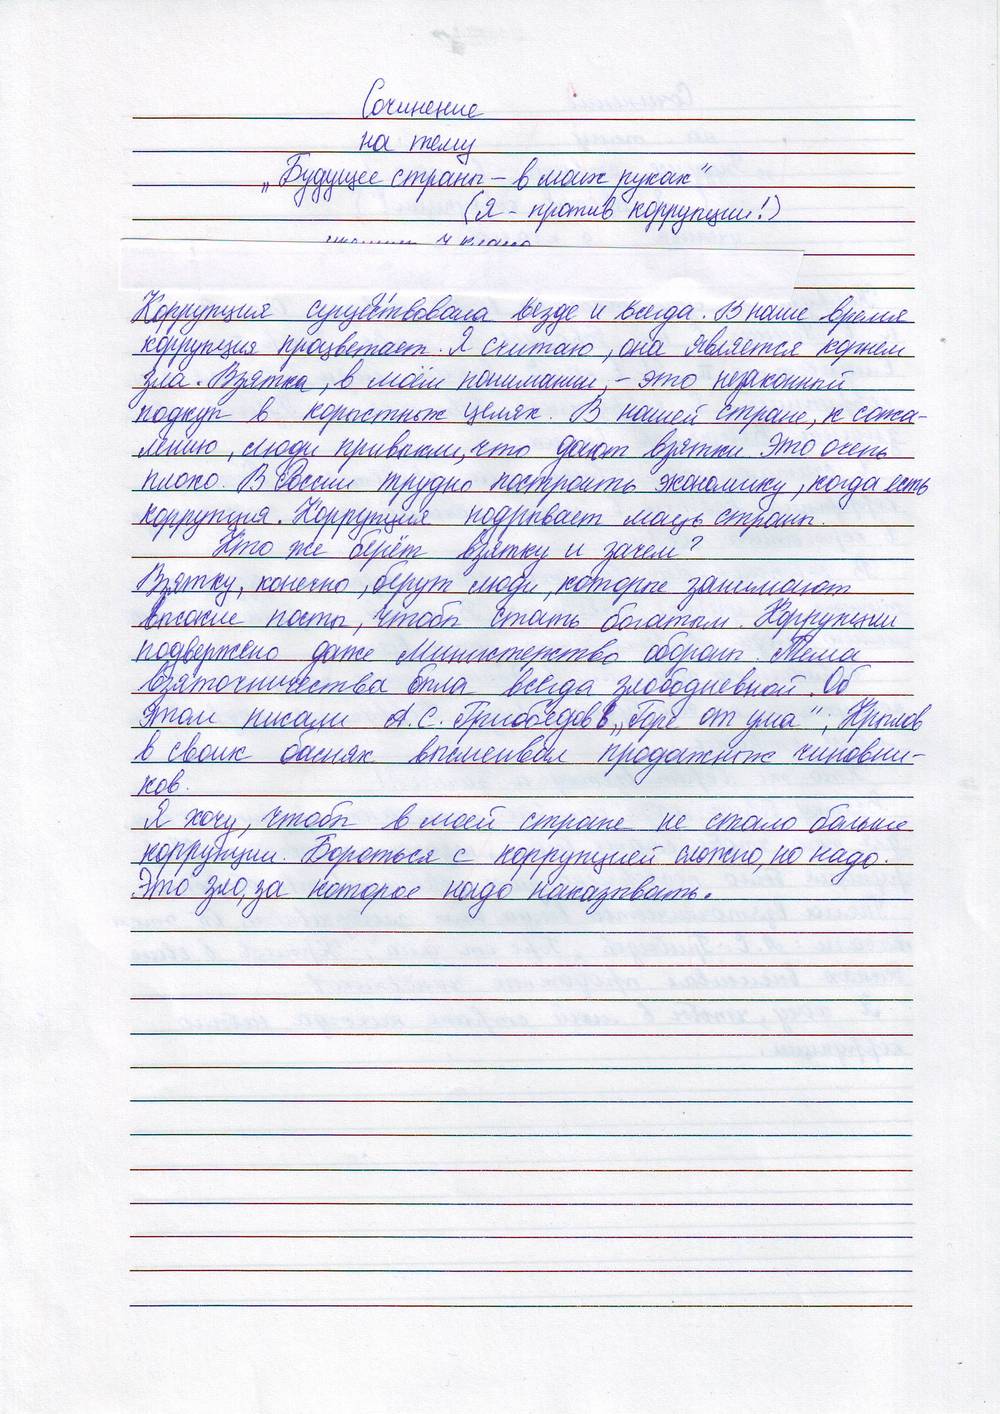 Сочинение
на тему
„Будущее страны – в моих руках"
(Я – против коррупции!)
Коррупция существовала везде и всегда. В наше время
коррупция процветает. Я считаю, она является корнем
зла. Взятка, в моём понимании, – это незаконный
подкуп в корыстных целях. В нашей стране, к сожа-
лению, люди привыкли, что дают взятки. Это очень
плохо. В России трудно построить экономику, когда есть
коррупция. Коррупция подрывает мощь страны.
Кто же берёт взятку и зачем?
Взятку, конечно, берут люди, которые занимают
высокие посты, чтобы стать богатым. Коррупции
подвержено даже Министерство обороны. Тема
взяточничества была всегда злободневной. Об
этом писали А.С. Грибоедов в „Горе от ума"; Крылов
в своих баснях высмеивал продажных чиновни-
ков.
Я хочу, чтобы в моей стране не стало больше
коррупции. Бороться с коррупцией сложно, но надо.
Это зло, за которое надо наказывать.